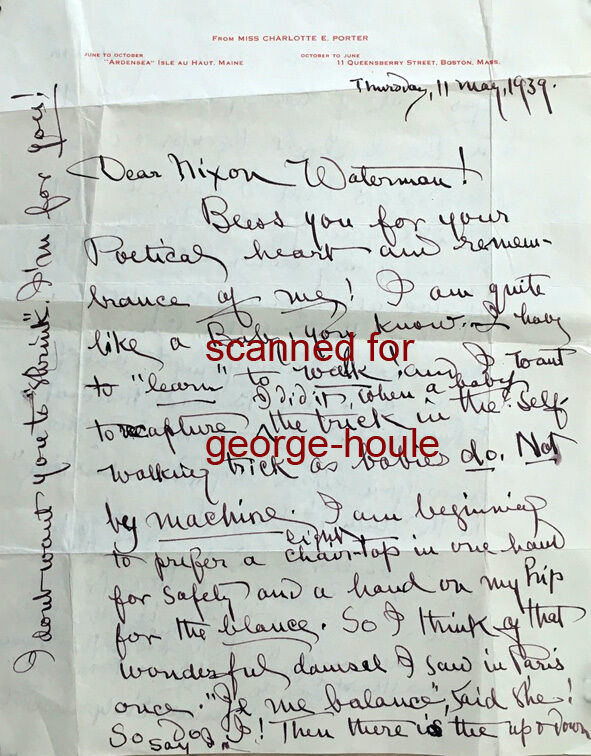 From MISS CHARLOTTE E. PORTER
JUNE TO OCTOBER
"ARDENSEA" ISLE AU HAUT, MAINE
OCTOBER TO JUNE
11 QUEENSBERRY STREET, BOSTON, MASS.
Thursday, 11 May, 1939.
Dear Nixon Waterman!
Bless you for your
Poetical heart and remem-
brance of me! I am quite
like a Baby, you know. I have
to "learn" to walk, and I want
I did it, when a baby
to recapture the trick in the self-
walking trick as babies do. Not
by machine. I am beginning
light
to prefer a chair-top in one hand
for safety and a hand on my hip
for the blance. So I think of that
wonderful damsel I saw in Paris
once. "Je me balance", said she!
So say I! Then there is the up & down
I dont want you to "shrink". I'm for you!
scanned for
george-houle